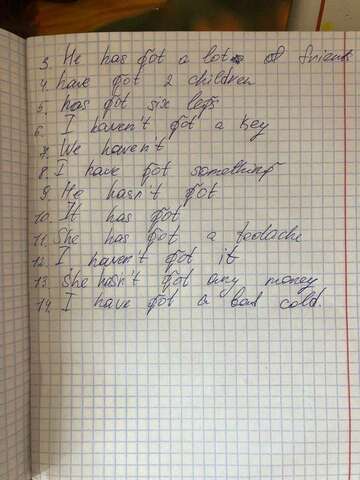 3. He has got a lot of friends
4. have got 2 children
5. has got six legs
6. I haven't got a key
7. We haven't
8. I have got something
9. He hasn't got
10. It has got
11. She has got a
12. I haven't got it
13. She hasn't got any money
14. I have got a bad cold.